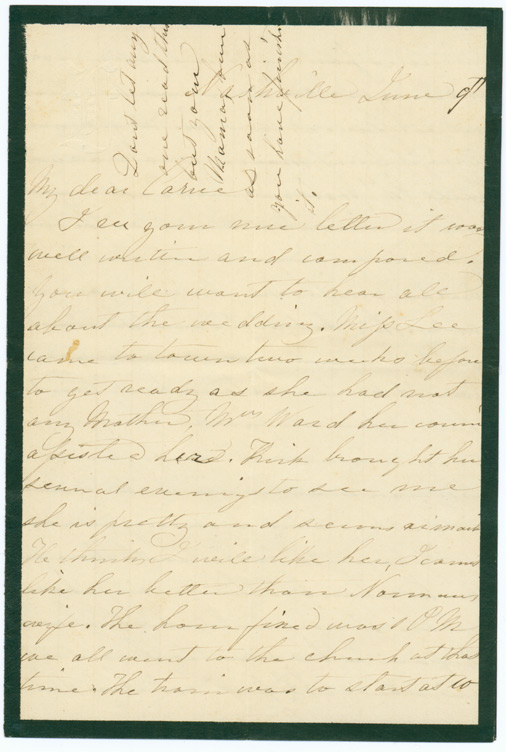 Dont let any
one read this
but your
Mama, burn
as soon as
you have finished
it.
Nashville June 9th
My dear Carrie
I rec your nice letter it was
well written and composed.
You will want to hear all
about the wedding. Miss Lee
came to town two weeks before
to get ready as she had not
any Mother, Mrs Ward her cousin
assisted here. Kirk brought her
several evenings to see me
she is pretty and seems
He thinks I will like her, I
like her better than Normans
wife. The hour fixed was 8 P.M
we all went to the church at that
time. The train was to start at 10